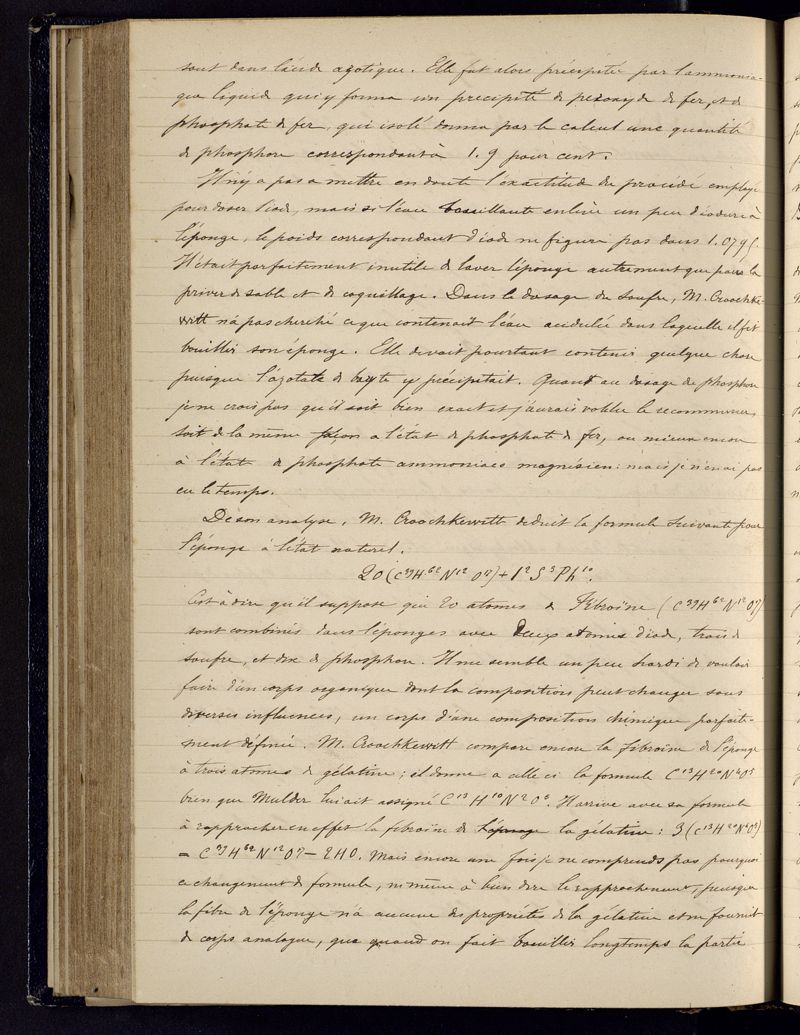 sout dans l'acide azotique. Elle fut alors précipitée par l'ammonia-
que liquide qui y forma un precipité de peroxyde de fer, et de
phosphate de fer, qui isolé donna par le calcul une quantité
de phosphore correspondant à 1.9 pour cent.
Il n'y a pas a mettre en doute l'exactitude du procédé employé
pour doser l'iode, mais si l'eau bouillante enlève un peu d'iodure à
l'éponge, le poids correspondant d'iode ne figure pas dans 1.079
Il était parfaitement inutile de laver l'éponge autrement que pour la
priver de sable et de coquillage. Dans le dosage du soufre, M. Croochke-
witt n'a pas cherché ce que contenait l'eau acidulée dans laquelle il fit
bouillir son éponge. Elle devait pourtant contenir quelque chose
puisque l'azotate de baryte y précipitait. Quant au dosage du phosphore
je ne crois pas qu'il soit bien exact et j'aurais voulu le recommencer
soit de la même façon a l'état de phosphate de fer, ou mieux encore
à l'état de phosphate ammoniaco magnésien: mais je n'en ai pas
eu le temps.
De son analyse, M. Croochkewitt deduit la formule suivante pour
l'éponge à l'état naturel.
20 (C³⁹H⁶²N¹²O¹⁷) + I²S³Ph¹⁰.
C'est à dire qu'il suppose que 20 atomes de Fibroïne (C³⁹H⁶²N¹²O¹⁷)
sont combinés dans l'éponge avec deux atomes d'iode, trois de
soufre, et dix de phosphore. Il me semble un peu hardi de vouloir
faire d'un corps organique dont la composition peut changer sous
diverses influences, un corps d'une composition chimique parfaite-
ment définie. M. Croochkewitt compare encore la fibroïne de l'éponge
à trois atomes de gélatine; il donne a celle ci la formule C¹³H²⁰N⁴O⁵
bien que Mulder lui ait assigné C¹³H¹⁰N²O⁵. Il arrive avec sa formule
à rapprocher en effet la fibroïne de l'éponge la gélatine: 3(C¹³H²⁰N⁴O⁵)
= C³⁹H⁶²N¹²O¹⁷ - 2HO. Mais encore une fois je ne comprends pas pourquoi
ce changement de formule, ni même à bien dire le rapprochement, puisque
la fibre de l'éponge n'a aucune des propriétés de la gélatine et ne fournit
de corps analogue, que quand on fait bouillir longtemps la partie